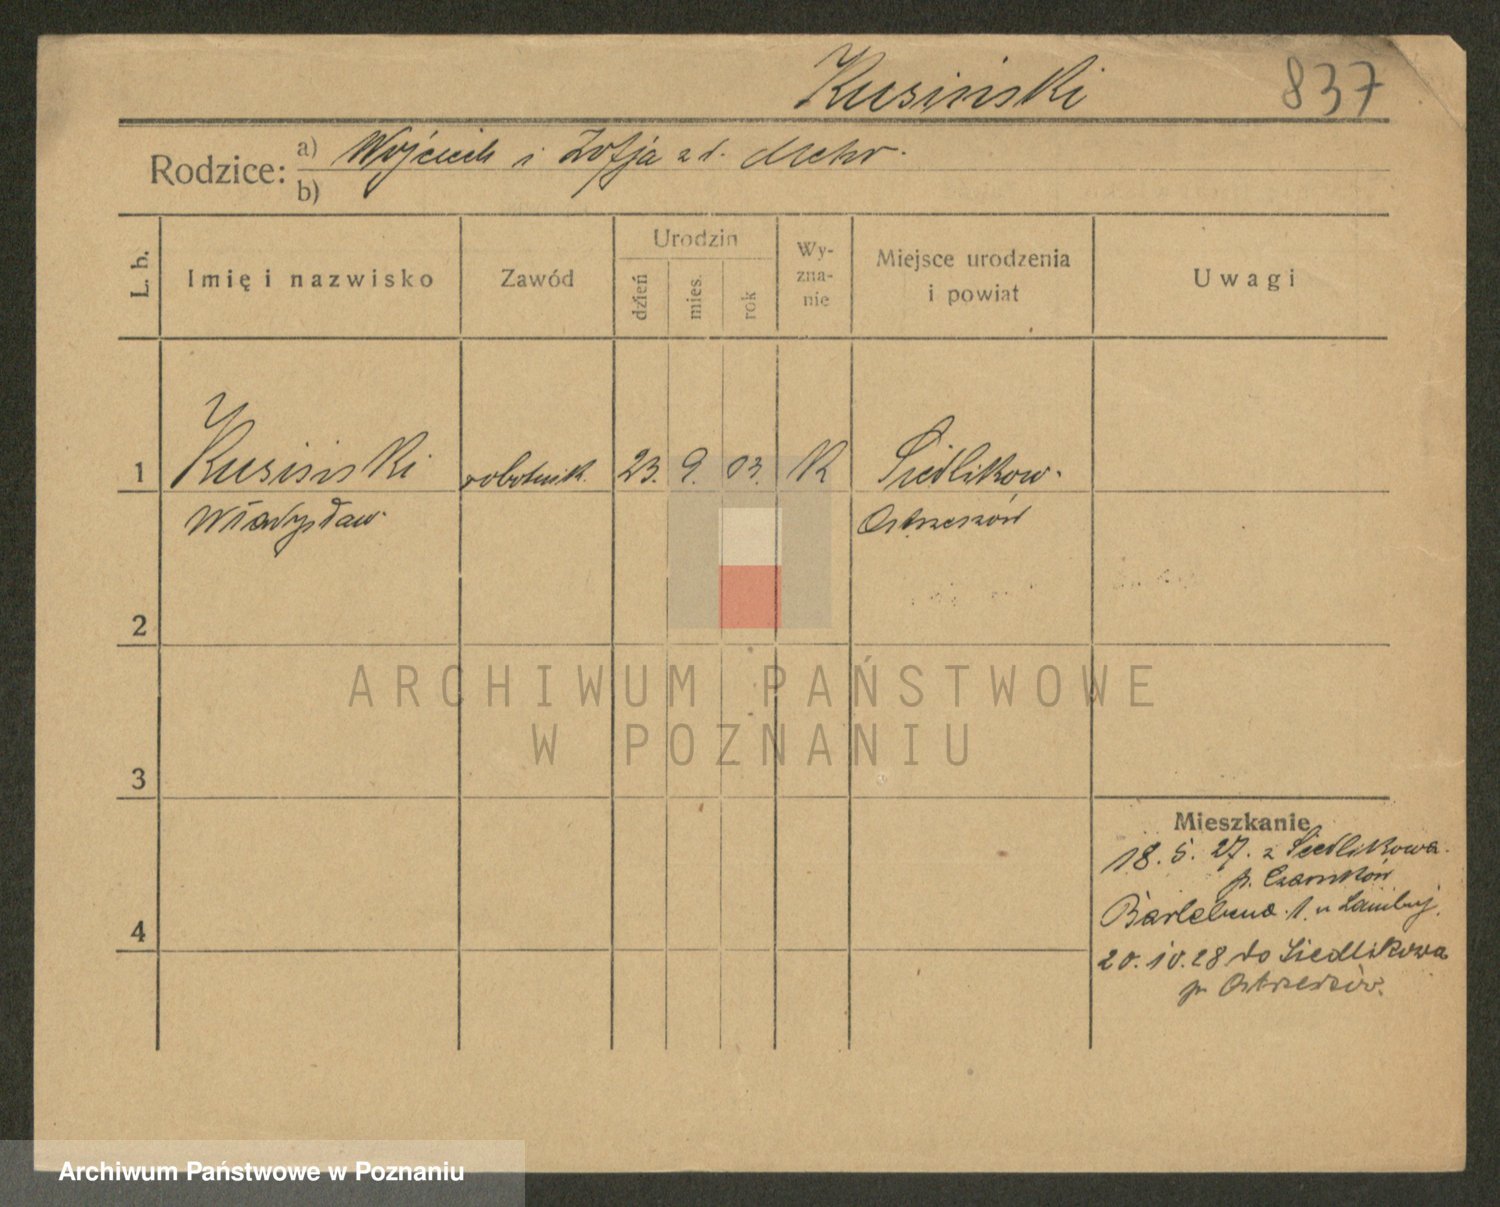 Kusiński 837
Rodzice: a) Wojciech i Zofja z d. Mehr.
b)
L. b. Imię i nazwisko Zawód Urodzin dzień mies. rok Wy-zna-nie Miejsce urodzenia i powiat Uwagi
1 Kusiński robotnik 23. 9. 03. K Siedlików.
Władysław Ostrzeszów
2
ARCHIWUM PAŃSTWOWE
W POZNANIU
3
Mieszkanie
18. 5. 27. z Siedlikowa.
p.
4 1. u
20. 10. 28 do Siedlikowa
p. Ostrzeszów.
Archiwum Państwowe w Poznaniu